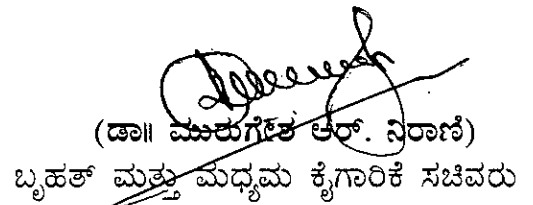 (ಡಾ॥ ಮುರುಗೇಶ ಆರ್. ನಿರಾಣಿ)
ಬೃಹತ್ ಮತ್ತು ಮಧ್ಯಮ ಕೈಗಾರಿಕೆ ಸಚಿವರು